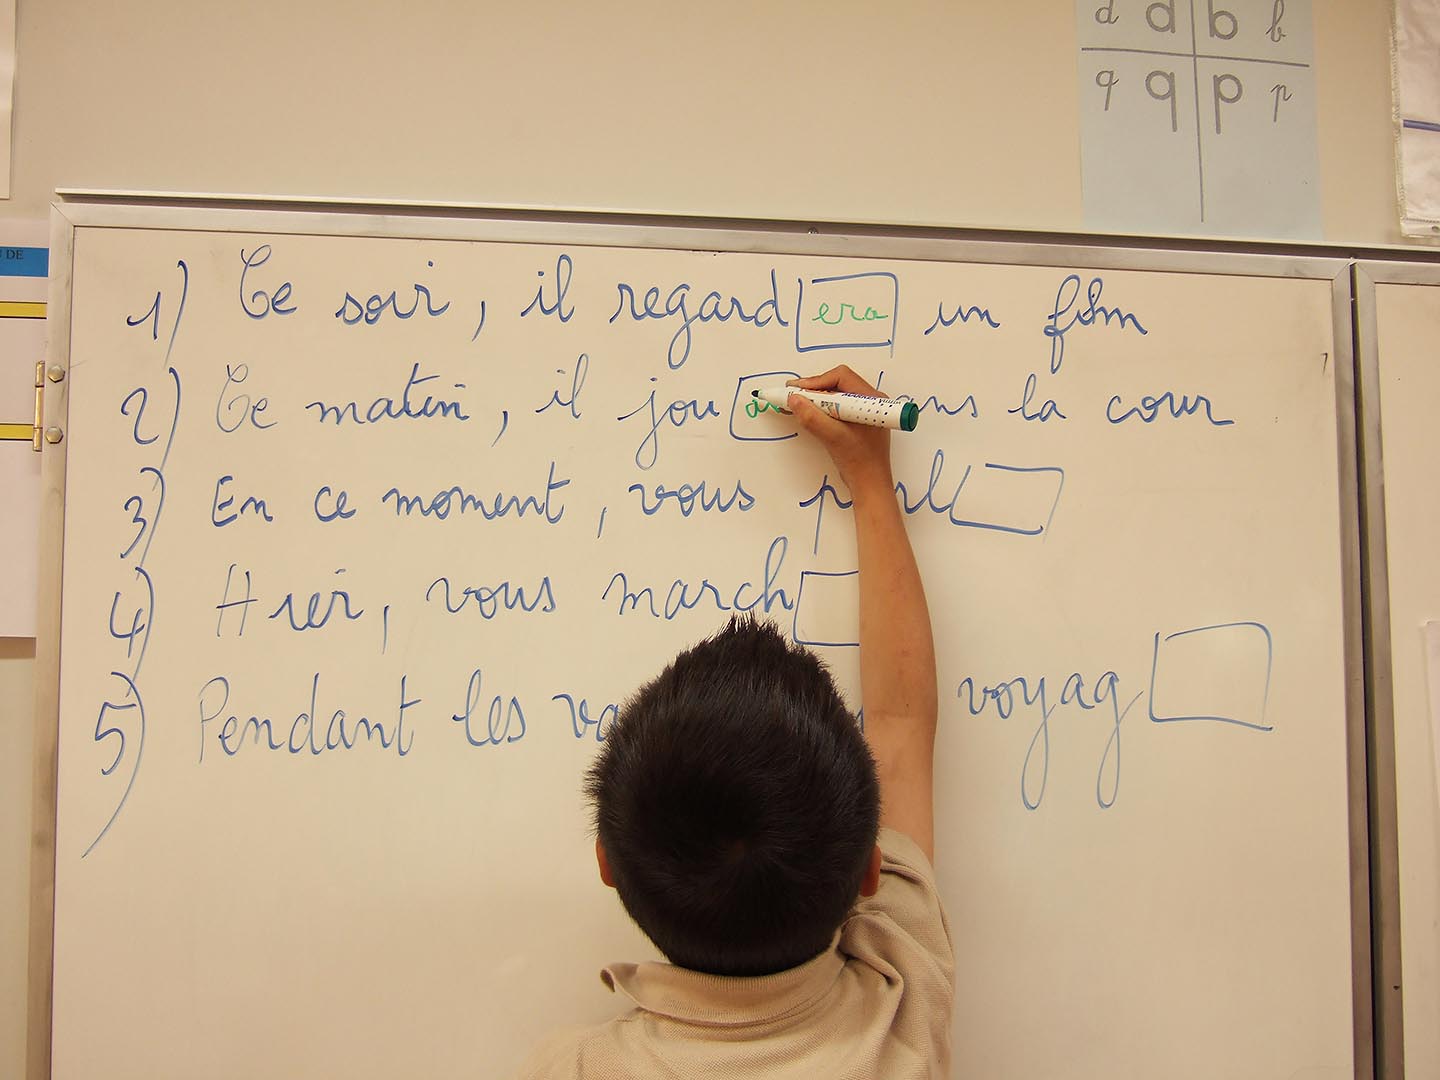 d d b b
q q p p
DE
1) Ce soir, il regardera un film
2) Ce matin, il jou dans la cour
3) En ce moment, vous parl
4) Hier, vous march
5) Pendant les voyag